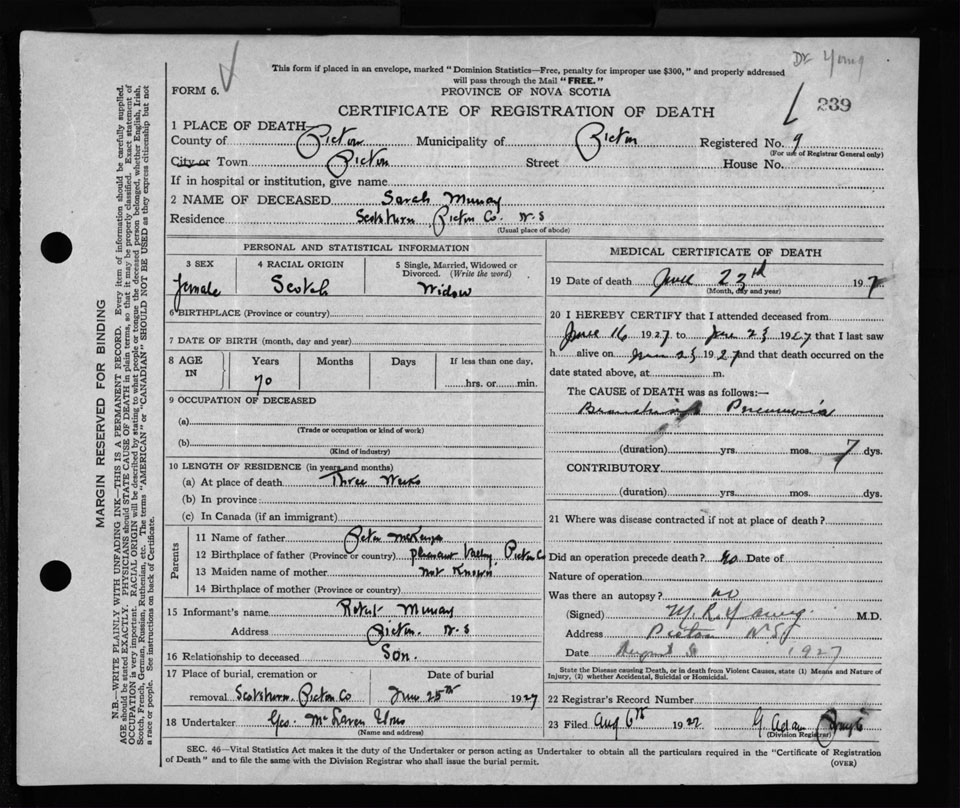 Dr Young
This form if placed in an envelope, marked "Dominion Statistics—Free, penalty for improper use $300," and properly addressed
will pass through the Mail "FREE."
FORM 6.
PROVINCE OF NOVA SCOTIA
CERTIFICATE OF REGISTRATION OF DEATH
239
1 PLACE OF DEATH
County of Pictou Municipality of Pictou Registered No. 9
(For use of Registrar General only)
City or Town Pictou Street House No.
If in hospital or institution, give name
2 NAME OF DECEASED Sarah Murray
Residence Scotsburn, Pictou Co N.S
(Usual place of abode)
PERSONAL AND STATISTICAL INFORMATION
3 SEX 4 RACIAL ORIGIN 5 Single, Married, Widowed or Divorced. (Write the word)
female Scotch Widow
6 BIRTHPLACE (Province or country)
7 DATE OF BIRTH (month, day and year)
8 AGE IN Years Months Days If less than one day,
70 hrs. or min.
9 OCCUPATION OF DECEASED
(a)
(Trade or occupation or kind of work)
(b)
(Kind of industry)
10 LENGTH OF RESIDENCE (in years and months)
(a) At place of death Three Weeks
(b) In province
(c) In Canada (if an immigrant)
Parents
11 Name of father Peter McKenzie
12 Birthplace of father (Province or country) Pleasant Valley, Pictou Co
13 Maiden name of mother Not Known
14 Birthplace of mother (Province or country)
15 Informant's name Robert Murray
Address Pictou. N.S
16 Relationship to deceased Son.
17 Place of burial, cremation or Date of burial
removal Scotsburn. Pictou Co June 25th 1927
18 Undertaker Geo. McLaren
(Name and address)
MEDICAL CERTIFICATE OF DEATH
19 Date of death June 23rd 1927
(Month, day and year)
20 I HEREBY CERTIFY that I attended deceased from
June 16 1927 to June 23 1927 that I last saw
h alive on June 23 1927 and that death occurred on the
date stated above, at m.
The CAUSE of DEATH was as follows:—
Pneumonia
(duration) yrs. mos. 7 dys.
CONTRIBUTORY
(duration) yrs. mos. dys.
21 Where was disease contracted if not at place of death?
Did an operation precede death? No Date of
Nature of operation
Was there an autopsy? no
(Signed) M. R. Young M.D.
Address Pictou N.S
Date August 6 1927
State the Disease causing Death, or in death from Violent Causes, state (1) Means and Nature of
Injury, (2) whether Accidental, Suicidal or Homicidal.
22 Registrar's Record Number
23 Filed Aug 6th 1927 G. Adam
(Division Registrar)
SEC. 46—Vital Statistics Act makes it the duty of the Undertaker or person acting as Undertaker to obtain all the particulars required in the "Certificate of Registration
of Death" and to file the same with the Division Registrar who shall issue the burial permit.
(OVER)
MARGIN RESERVED FOR BINDING
N.B.—WRITE PLAINLY WITH UNFADING INK—THIS IS A PERMANENT RECORD. Every item of information should be carefully supplied.
AGE should be stated EXACTLY. PHYSICIANS should STATE CAUSE OF DEATH in plain terms, so that it may be properly classified. Exact statement of
OCCUPATION is very important. RACIAL ORIGIN will be described by stating to what people or tongue the deceased person belonged, whether English, Irish,
Scotch, French, German, Russian, Ruthenian, etc. The terms "AMERICAN" or "CANADIAN" SHOULD NOT BE USED as they express citizenship but not
a race or people. See instructions on back of Certificate.